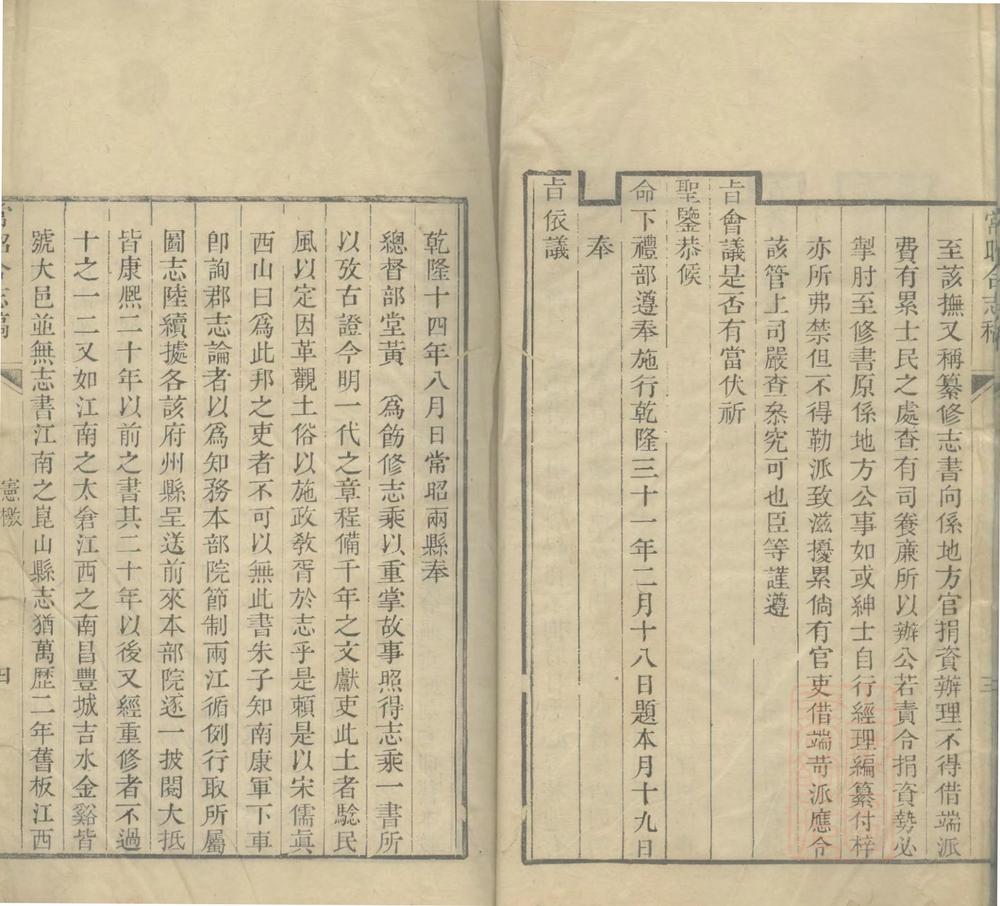 常昭合志稿
三
至該撫又稱纂修志書向係地方官捐資辦理不得借端派
費有累士民之處查有司養廉所以辦公若責令捐資勢必
掣肘至修書原係地方公事如或紳士自行經理編纂付梓
亦所弗禁但不得勒派致滋擾累倘有官吏借端苛派應令
該管上司嚴查叅究可也臣等謹遵
旨會議是否有當伏祈
聖鑒恭候
命下禮部遵奉施行乾隆三十一年二月十八日題本月十九日
奉
旨依議
乾隆十四年八月日常昭兩縣奉
總督部堂黃　爲飭修志乘以重掌故事照得志乘一書所
以攷古證今明一代之章程備千年之文獻吏此土者騐民
風以定因革觀土俗以施政敎胥於志乎是賴是以宋儒眞
西山曰爲此邦之吏者不可以無此書朱子知南康軍下車
卽詢郡志論者以爲知務本部院節制兩江循例行取所屬
圖志陸續據各該府州縣呈送前來本部院逐一披閱大抵
皆康熈二十年以前之書其二十年以後又經重修者不過
十之一二又如江南之太倉江西之南昌豐城吉水金谿皆
號大邑並無志書江南之崑山縣志猶萬歷二年舊板江西
常昭合志稿
憲檄
四